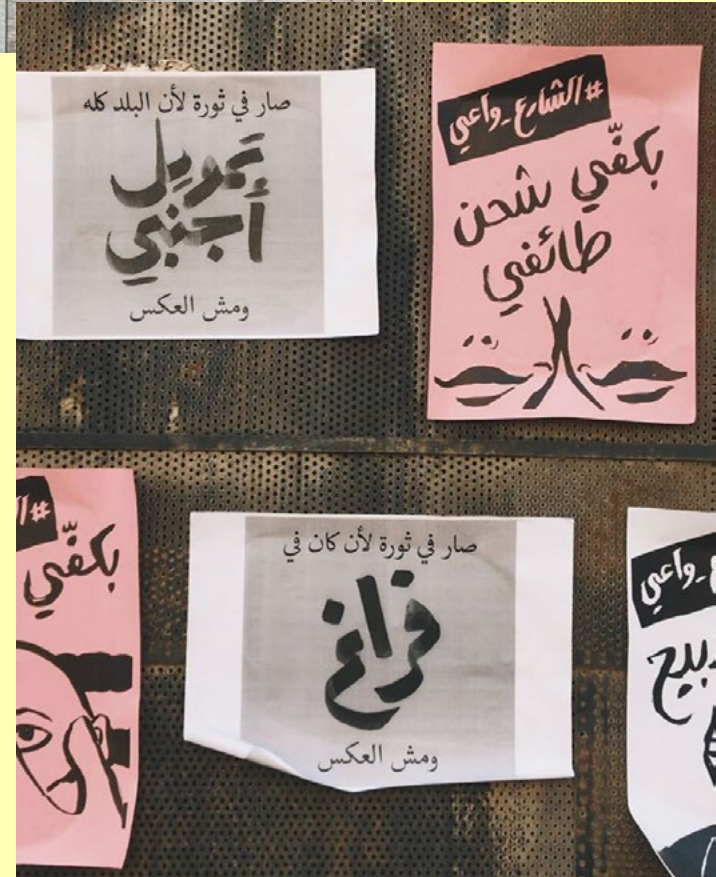 صار في ثورة لأن البلد كله
تمويل
أجنبي
ومش العكس
#الشارع_واعي
بكفّي شحن
طائفي
صار في ثورة لأن كان في
فراغ
ومش العكس
#ا
بكفّي
واعي